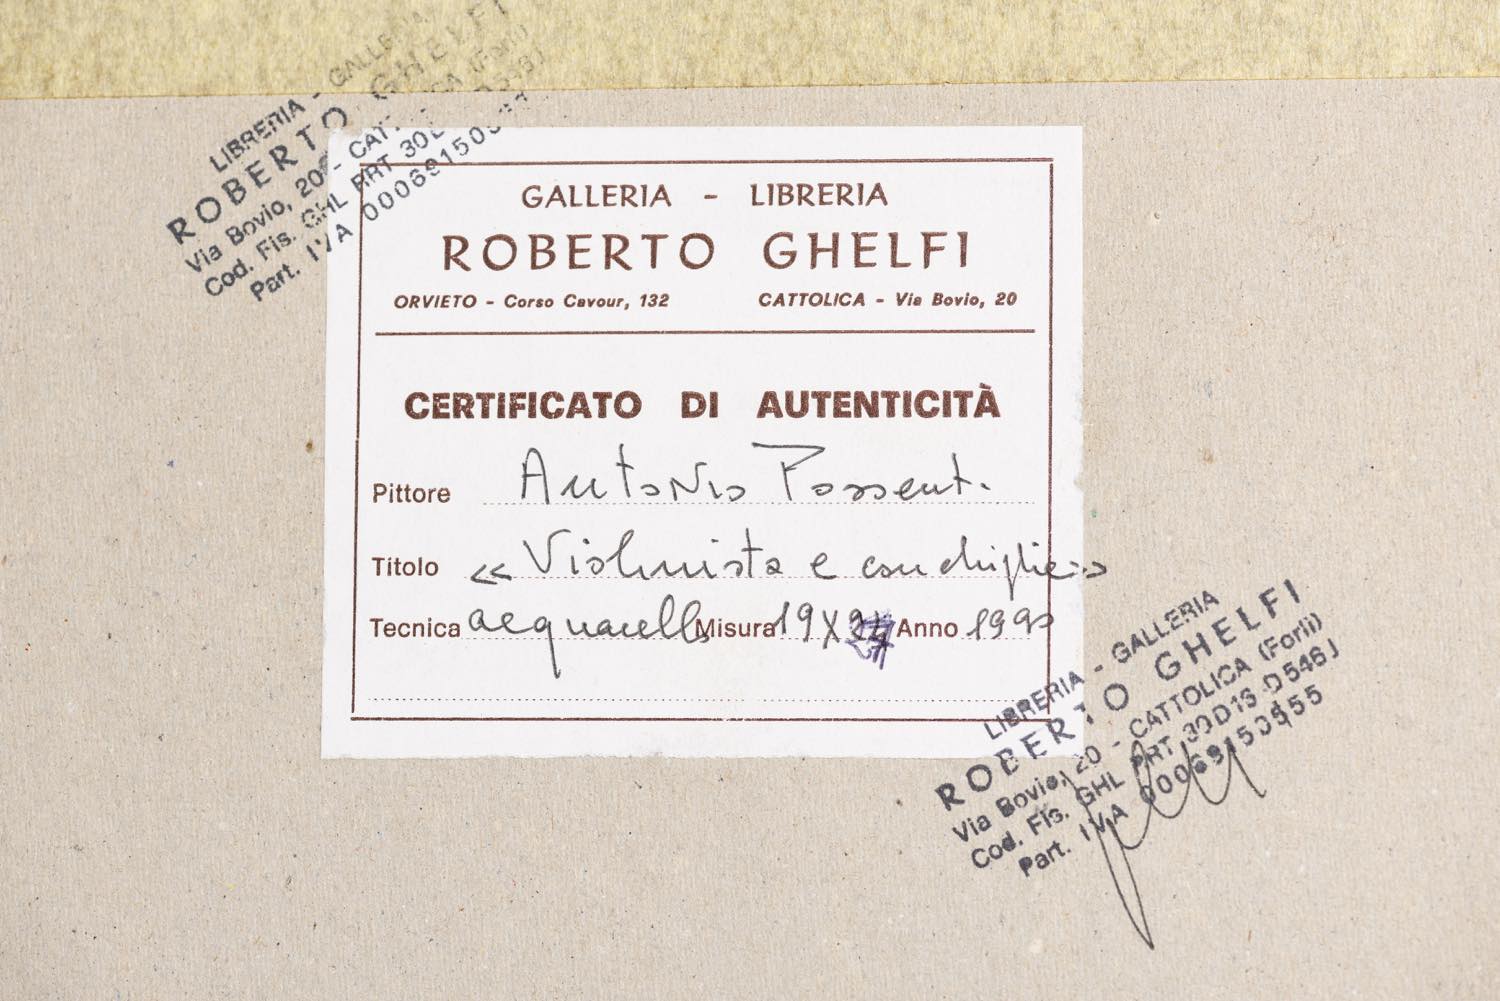 LIBRERIA - GALLERIA
ROBERTO GHELFI
Via Bovio, 20 - CATTOLICA (Forlì)
Cod. Fis. GHL RRT 30D
Part. IVA 00069150
GALLERIA - LIBRERIA
ROBERTO GHELFI
ORVIETO - Corso Cavour, 132 CATTOLICA - Via Bovio, 20
CERTIFICATO DI AUTENTICITÀ
Pittore Antonio Possenti
Titolo « Violinista e conchiglie »
Tecnica acquarello Misura 19 X Anno 1990
LIBRERIA - GALLERIA
ROBERTO GHELFI
Via Bovio, 20 - CATTOLICA (Forlì)
Cod. Fis. GHL RRT 30D13 D546J
Part. IVA 00069150